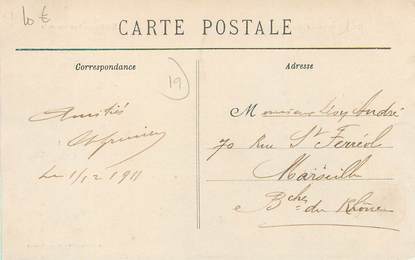 10 €
CARTE POSTALE
Correspondance
Adresse
19
Amitiés
Le 1/12 1911
Monsieur André
70 Rue St Ferréol
Marseille
Bches du Rhône